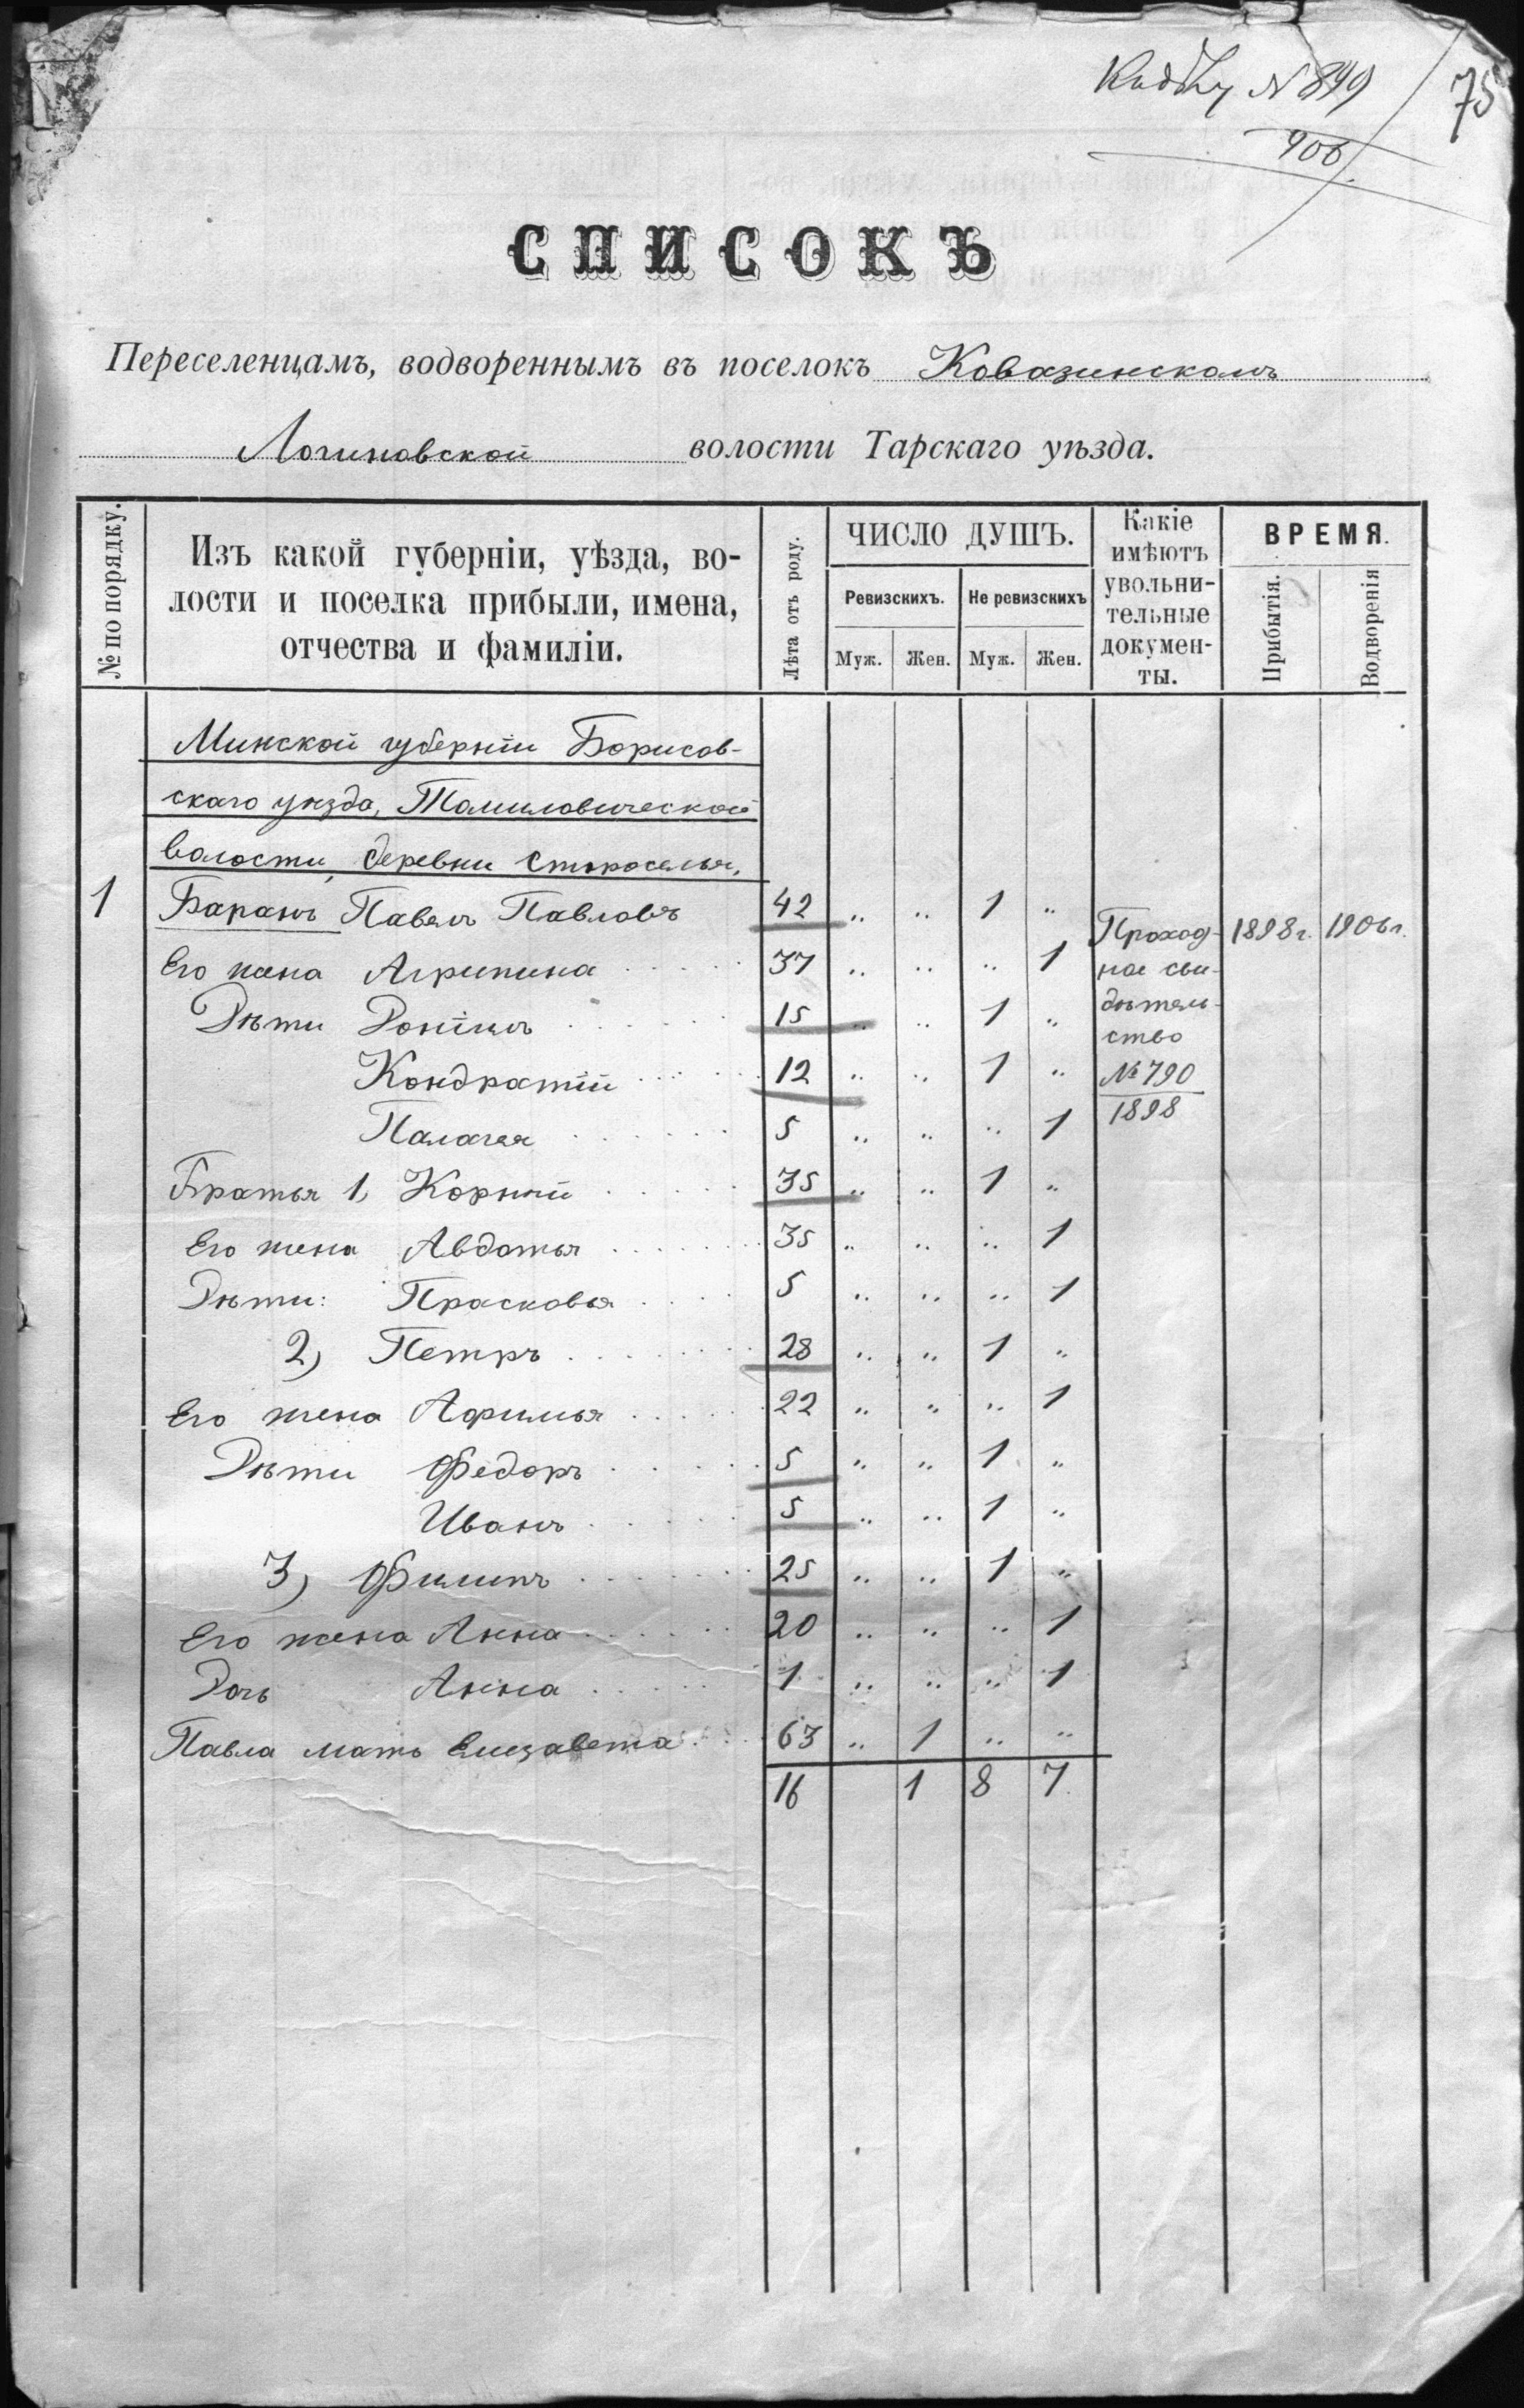 Къ дѣлу N 849
906
75
СПИСОКЪ
Переселенцамъ, водвореннымъ въ поселокъ Ковазинскомъ
Логиновской волости Тарскаго уѣзда.
№ по порядку.
Изъ какой губерніи, уѣзда, во-
лости и поселка прибыли, имена,
отчества и фамиліи.
Лѣта отъ роду.
ЧИСЛО ДУШЪ.
Ревизскихъ. Не ревизскихъ
Муж. Жен. Муж. Жен.
Какіе
имѣютъ
увольни-
тельные
докумен-
ты.
ВРЕМЯ.
Прибытія.
Водворенія
Минской губерніи Борисов-
скаго уѣзда, Томиловической
волости, деревни Староселья,
1 Баранъ Павелъ Павловъ 42 " " 1 " 1898 г. 1906 г.
Его жена Агрипина 37 " " " 1
Дѣти Донатъ 15 " " 1 "
Кондратій 12 " " 1 "
Палагея 5 " " " 1
Проход-
ное сви-
дѣтель-
ство
№ 790
1898
Братья 1, Корній 35 " " 1 "
Его жена Авдотья 35 " " " 1
Дѣти: Прасковья 5 " " " 1
2) Петръ 28 " " 1 "
Его жена Афимья 22 " " " 1
Дѣти Федоръ 5 " " 1 "
Иванъ 5 " " 1 "
3) Филипъ 25 " " 1 "
Его жена Анна 20 " " " 1
Дочь Анна 1 " " " 1
Павла мать Елизавета 63 " 1 " "
16 1 8 7